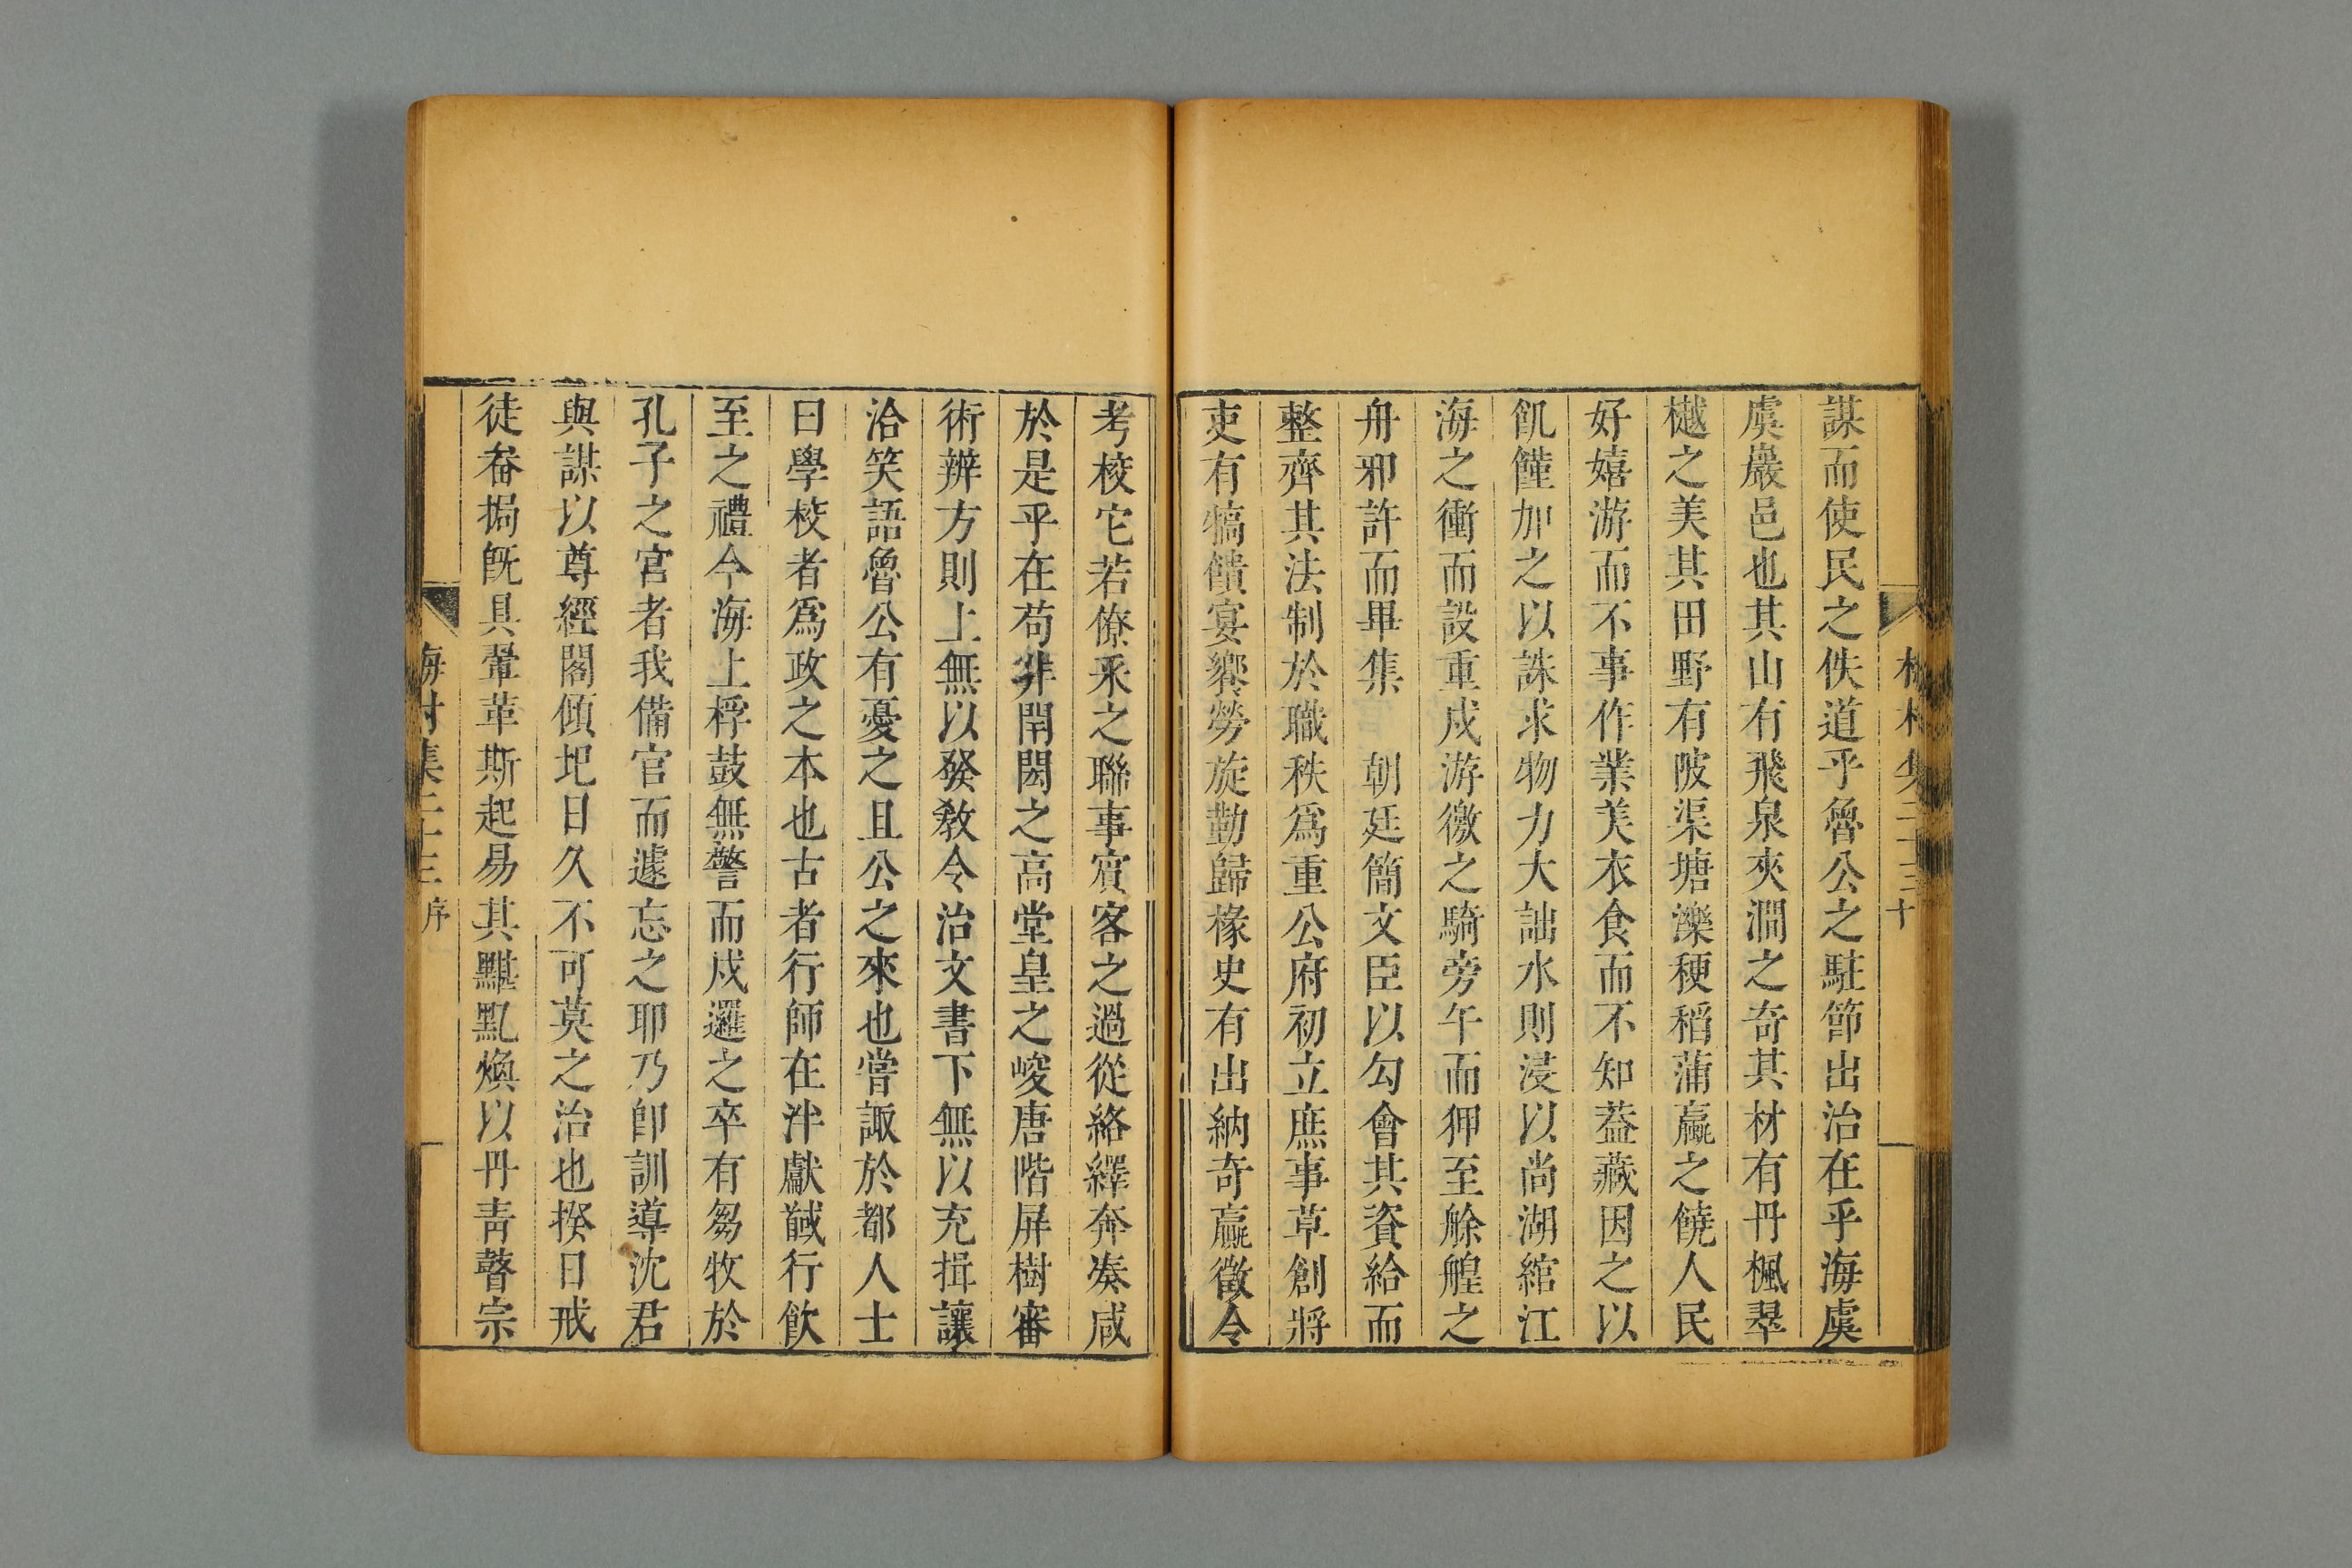 謀而使民之佚道乎魯公之駐節出治在乎海虞
虞巖邑也其山有飛泉夾澗之奇其材有丹楓翠
樾之美其田野有陂渠塘濼稉稻蒲蠃之饒人民
好嬉游而不事作業美衣食而不知葢藏因之以
飢饉加之以誅求物力大詘水則浸以尚湖綰江
海之衝而設重戍游徼之騎旁午而狎至艅艎之
舟邪許而畢集 朝廷簡文臣以勾會其資給而
整齊其法制於職秩爲重公府初立庶事草創將
吏有犒饋宴饗勞旋勤歸椽史有出納奇羸徵令
考校它若僚寀之聯事賓客之過從絡繹奔湊咸
於是乎在苟非閈閎之高堂皇之峻唐階屏樹審
術辨方則上無以發敎令治文書下無以充揖讓
洽笑語魯公有憂之且公之來也嘗諏於都人士
曰學校者爲政之本也古者行師在泮獻馘行飲
至之禮今海上桴鼓無警而戍邏之卒有芻牧於
孔子之宮者我備官而遽忘之耶乃卽訓導沈君
與謀以尊經閣傾圯日久不可莫之治也揆日戒
徒畚挶旣具翬革斯起易其黮黕煥以丹靑瞽宗
海村集二十三 序